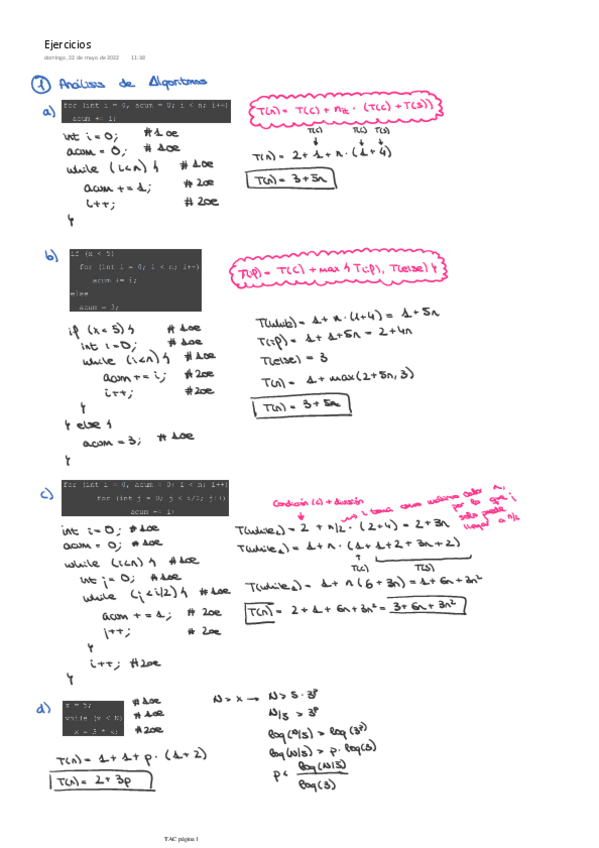 Ejercicios
domingo, 22 de mayo de 2022 11:38
① Análisis de Algoritmos
a)
for (int i = 0, acum = 0; i < n; i++)
acum += i;
T(n) = T(C) + nit · (T(C) + T(S))
int i = 0; #1oe
acum = 0; #1oe
while (i<n) { #1oe
acum += 1; #2oe
i++; #2oe
}
T(C) T(C) T(S)
T(n) = 2 + 1 + n · (1 + 4)
T(n) = 3 + 5n
b)
if (x < 5)
for (int i = 0; i < n; i++)
acum += i;
else
acum = 3;
T(if) = T(C) + max { T(if), T(else) }
if (x < 5) { #1oe
int i = 0; #1oe
while (i<n) { #1oe
acum += i; #2oe
i++; #2oe
}
} else {
acum = 3; #1oe
}
T(while) = 1 + n · (1+4) = 1 + 5n
T(if) = 1 + 1 + 5n = 2 + 4n
T(else) = 3
T(n) = 1 + max(2+5n, 3)
T(n) = 3 + 5n
c)
for (int i = 0, acum = 0; i < n; i++)
for (int j = 0; j < i/2; j++)
acum += i;
int i = 0; #1oe
acum = 0; #1oe
while (i<n) { #1oe
int j = 0; #1oe
while (j < i/2) { #1oe
acum += 1; #2oe
j++; #2oe
}
i++; #2oe
}
Condición (C) + división
i toma como máximo valor n, por lo que j solo puede llegar a n/2
T(while₂) = 2 + n/2 · (2+4) = 2 + 3n
T(while₁) = 1 + n · (1 + 1 + 2 + 3n + 2)
T(C) T(S)
T(while₁) = 1 + n (6 + 3n) = 1 + 6n + 3n²
T(n) = 2 + 1 + 6n + 3n² = 3 + 6n + 3n²
d)
x = 5;
while (x < N)
x = 3 * x;
#1oe
#1oe
#2oe
T(n) = 1 + 1 + p · (1+2)
T(n) = 2 + 3p
N > x → N > 5 · 3ᵖ
N/5 > 3ᵖ
log(N/5) > log(3ᵖ)
log(N/5) > p · log(3)
p < log(N/5) / log(3)
TAC página 1